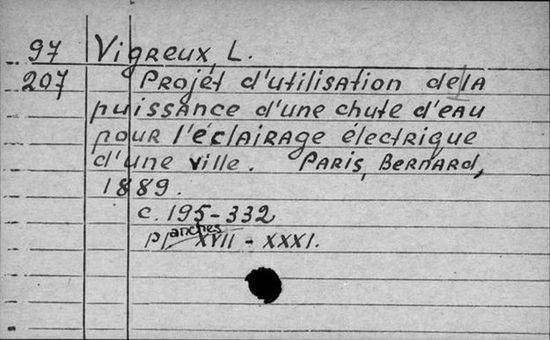 97 Vigreux, L.
207 Projet d'utilisation de la
puissance d'une chute d'eau
pour l'éclairage électrique
d'une ville. Paris, Bernard,
1889.
c. 195-332
planches XVII - XXXI.